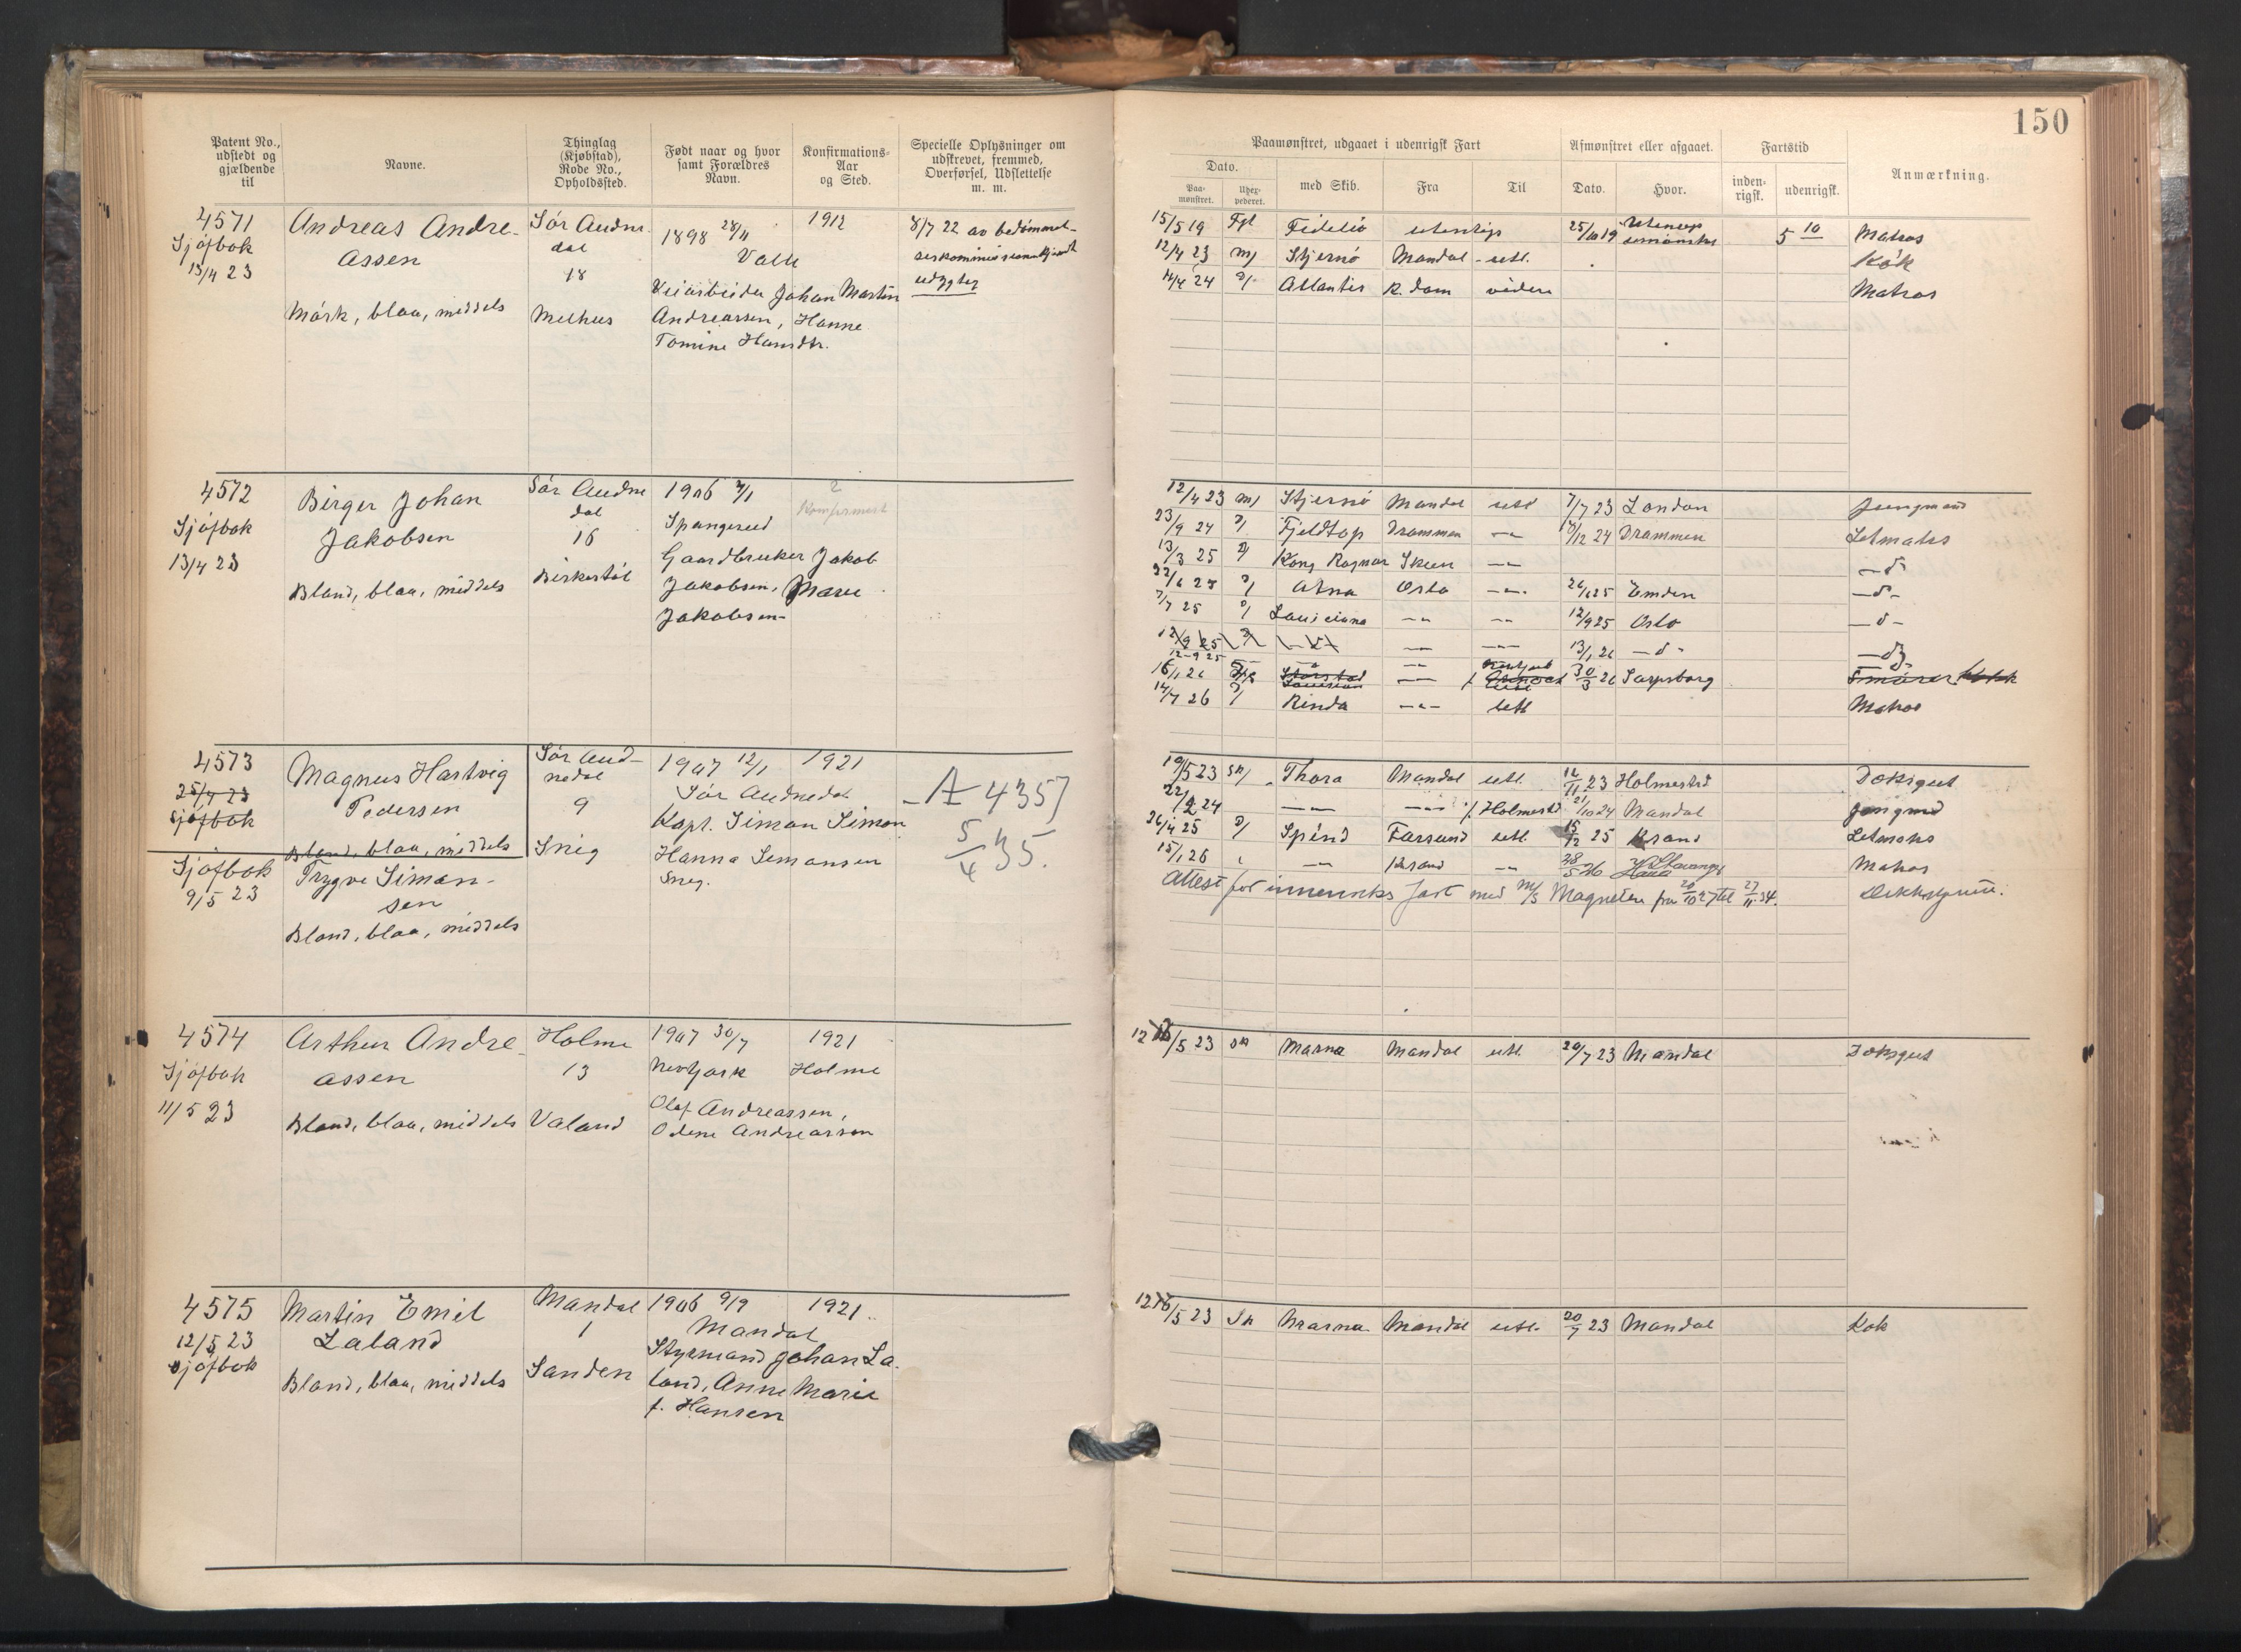 150
Patent No., udstedt og gjældende til
Navne.
Thinglag (Kjøbstad), Rode No., Opholdssted.
Født naar og hvor samt Forældres Navn.
Konfirmations-Aar og Sted.
Specielle Oplysninger om udskrevet, fremmed, Overførsel, Udslettelse m. m.
Paamønstret, udgaaet i udenrigsk Fart
Afmønstret eller afgaaet.
Fartstid
Anmærkning.
Dato.
Paa-mønstret.
med Skib.
Fra
Til
Dato.
Hvor.
inden-rigsk.
udenrigsk.
4571
Sjøfbok
13/4 23
Andreas Andre-
assen
Mørk, blaa, middels
Sør Audne-
dal
18
Melhus
1898 28/11
Valle
Keiarbeider Johan Martin
Andreassen, Hanne
Tomine Hansdtr.
1912
8/7 22 av bedømmel-
seskommissionen kjendt
udygtig
15/5 19 Fgt Fidelio utenrigs 25/10 19 5 10 Matros
12/4 23 m/ Stjernø Mandal - utl. Kok
14/4 24 D/ Atlantis R.dam videre Matros
4572
Sjøfbok
13/4 23
Birger Johan
Jakobsen
Blond, blaa, middels
Sør Audne
dal
16
Birkestøl
1906 7/1
Spangereid
Gaardbruker Jakob
Jakobsen, Marie
Jakobsen
Konfirmert
12/4 23 m/ Stjernø Mandal utl 7/7 23 London Jungmand
23/9 24 D/ Fjeldtop Drammen — 14/12 24 Drammen Letmatr
13/3 25 D/ Kong Ragnar Skien — —d—
D/ Atna Oslo — Emden —d—
7/7 25 D/ Louisiana — — 12/9 25 Oslo —d—
12/9 25 — — 13/1 26 —d—
12-9 25
16/1 26 — 30/3 26 Sarpsborg
14/7 26 D/ Rinda — utl Matros
4573
25/4 23
Sjøfbok
Magnus Hartvig
Pedersen
Blond, blaa, middels
Sør Aud-
nedal
9
Snig
1907 12/1
Sør Audnedal
Kapt. Simon Simon
Hanna Simonsen
Snig.
1921
A 4357
5/4 35.
Sjøfbok
9/5 23
Trygve Simon-
sen
Blond, blaa, middels
19/5 23 Sk/ Thora Mandal utl. 12/11 23 Holmestrd Dæksgut
22/2 24 — — Holmestrd 21/10 24 Mandal Jungmd
26/4 25 D/ Spind Farsund utl. 15/12 25 Krsand Letmatr
15/1 26 — Krsand — 28/5 26 Matros
Attest for innenriks fart med M/S Magnetin fra 20/10 27 til 27/11 34.
4574
Sjøfbok
11/5 23
Arthur Andre-
assen
Blond, blaa, middels
Holme
13
Valand
1907 30/7
New York
Olaf Andreassen,
Odene Andreassen
1921
Holme
12 16/5 23 Sk Marna Mandal utl. 20/7 23 Mandal Dæksgut
4575
12/5 23
Sjøfbok
Martin Emil
Laland
Blond, blaa, middels
Mandal
1
Sanden
1906 9/9
Mandal
Styrmand Johan La-
land, Anne Marie
f. Hansen
1921
12 16/5 23 Sk Marna Mandal utl. 20/7 23 Mandal Kok